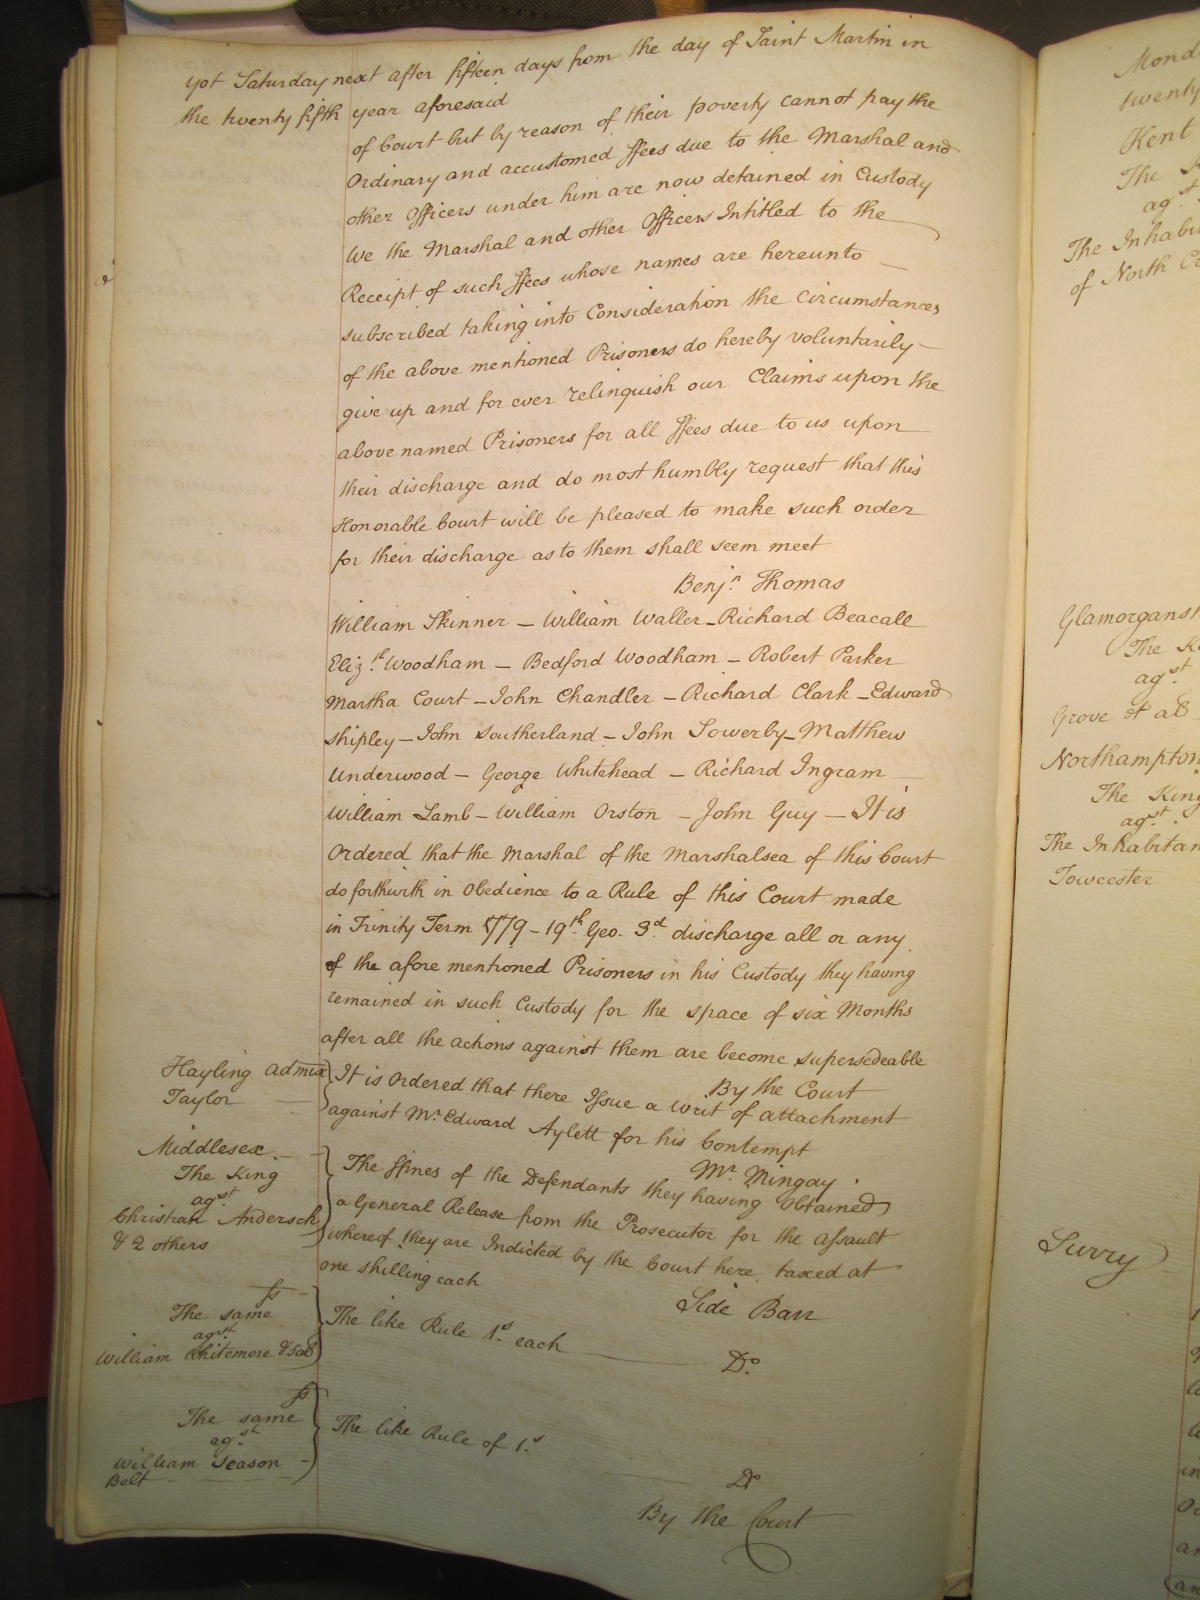 yot Saturday next after fifteen days from the day of Saint Martin in
the twenty fifth year aforesaid
of Court but by reason of their poverty cannot pay the
Ordinary and accustomed ffees due to the Marshal and
other Officers under him are now detained in Custody
We the Marshal and other Officers Intitled to the
Receipt of such ffees whose names are hereunto
subscribed taking into Consideration the Circumstances
of the above mentioned Prisoners do hereby voluntarily
give up and for ever relinquish our Claims upon the
above named Prisoners for all ffees due to us upon
their discharge and do most humbly request that this
Honorable Court will be pleased to make such order
for their discharge as to them shall seem meet
Benj.n Thomas
William Skinner – William Waller – Richard Beacall
Eliz.th Woodham – Bedford Woodham – Robert Parker
Martha Court – John Chandler – Richard Clark – Edward
Shipley – John Southerland – John Sowerby – Matthew
Underwood – George Whitehead – Richard Ingram
William Lamb – William Orston – John Guy – It is
Ordered that the Marshal of the Marshalsea of this Court
do forthwith in Obedience to a Rule of this Court made
in Trinity Term 1779 – 19th Geo. 3d discharge all or any
of the afore mentioned Prisoners in his Custody they having
remained in such Custody for the space of six Months
after all the actions against them are become supersedeable
By the Court
Hayling Admix
Taylor
It is Ordered that there Issue a Writ of attachment
against Mr Edward Aylett for his Contempt
Mr Mingay
Middlesex
The King
agst
Christian Andersck
& 2 others
The ffines of the Defendants they having obtained
a General Release from the Prosecutor for the assault
whereof they are Indicted by the Court here taxed at
one shilling each
Side Barr
ss
The same
agst
William Whitemore & 5 als
The like Rule 1s each
Do
ss
The same
agst
William Season
Belt
The like Rule of 1s
Do
By the Court
Mond
twenty
Kent
The K
agst
The Inhabi
of North C
Glamorgansh
The K
agst
Grove et als
Northampton
The King
agst
The Inhabitan
Towcester
Surry